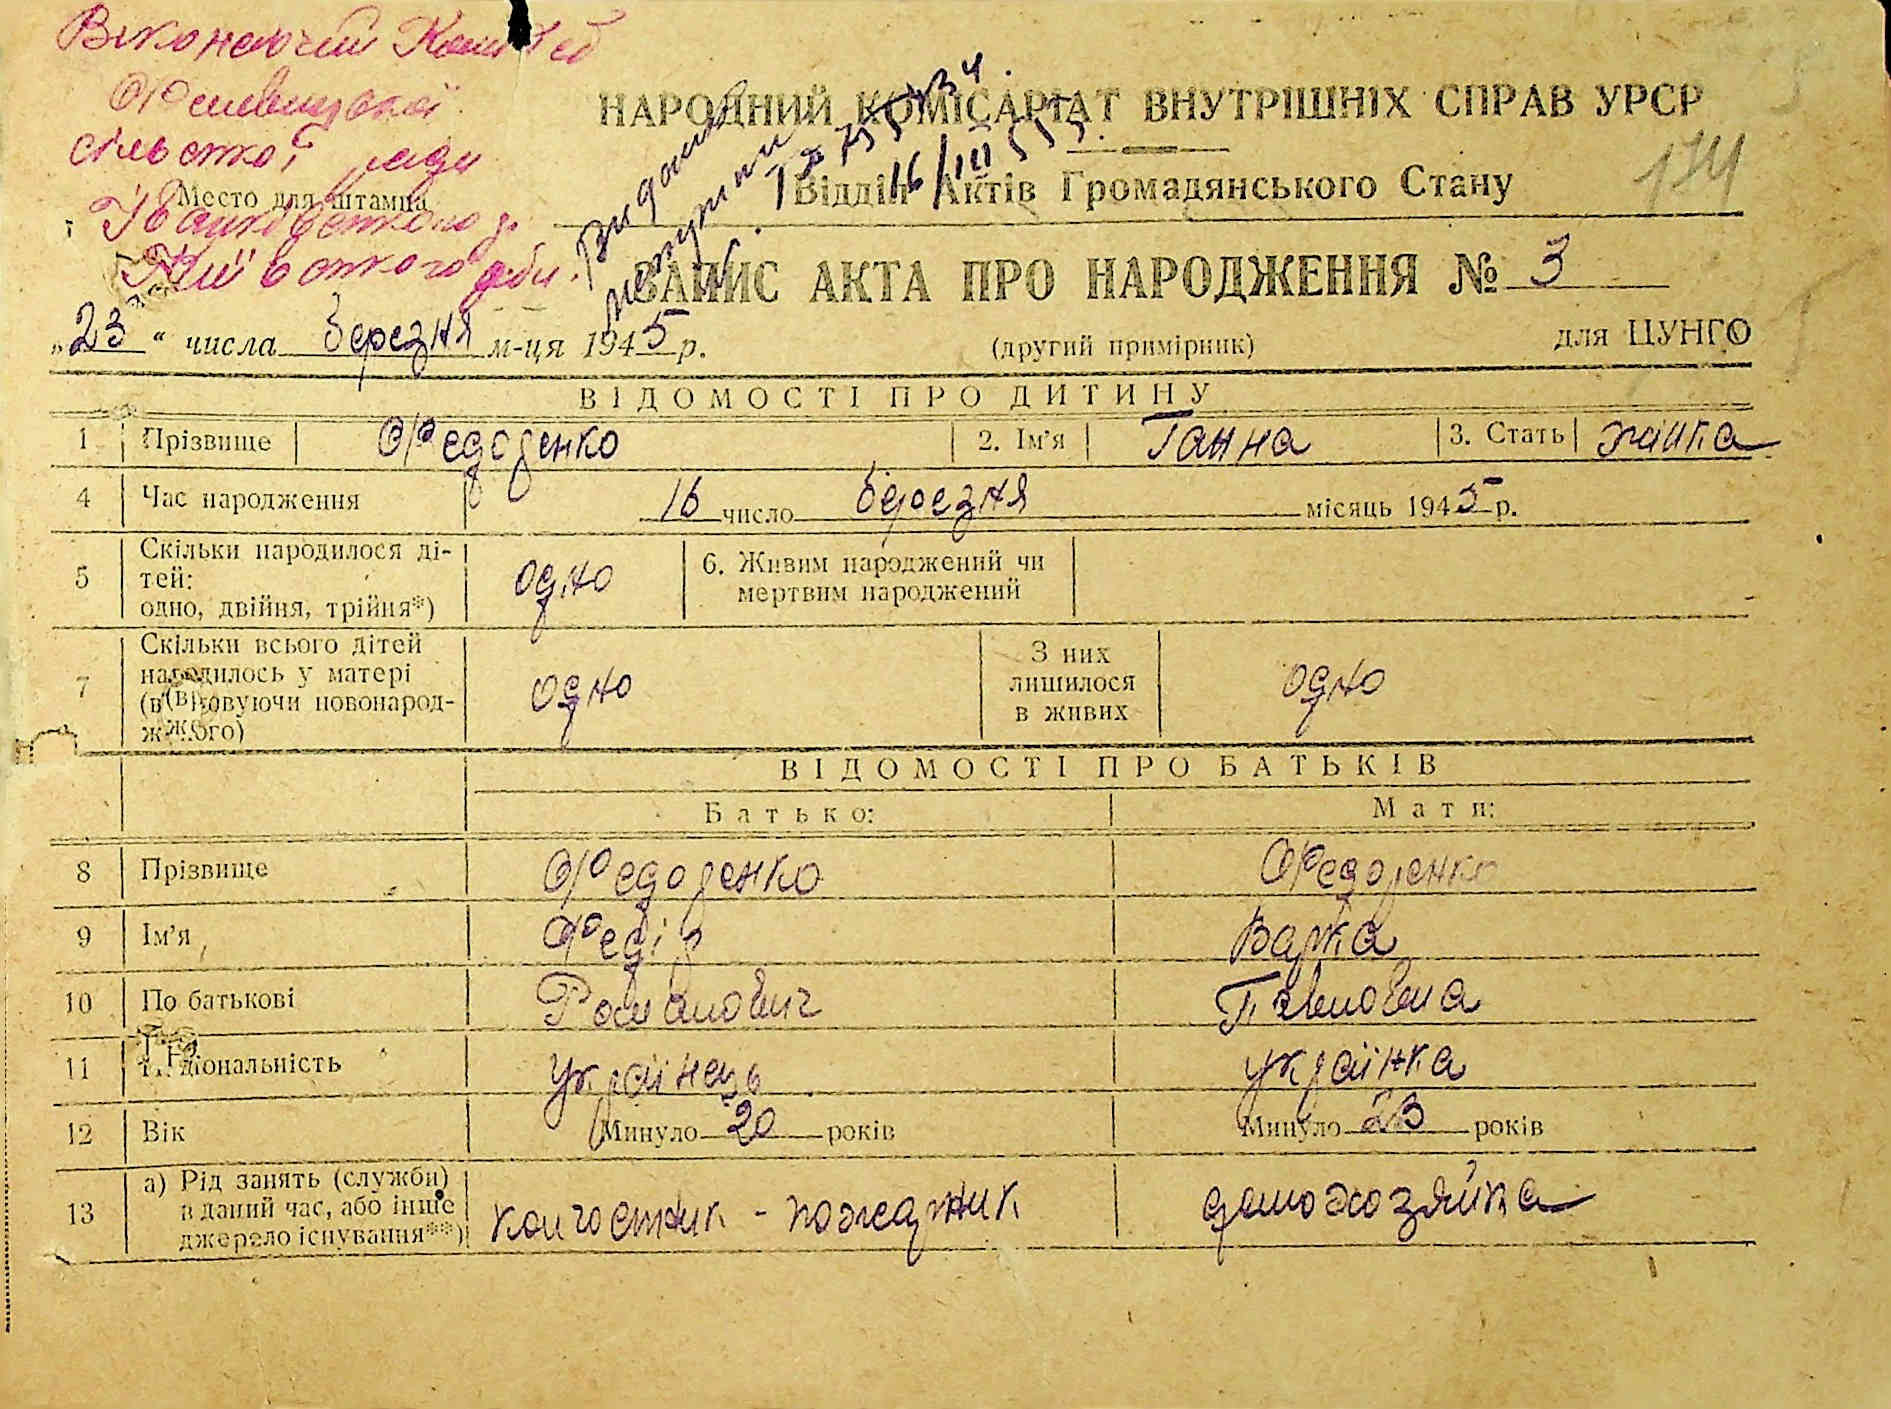 Віконаючий Комітет
сільської ради
Место для штампа
Іванківського р.
Київського обл.
Видано
НАРОДНИЙ КОМІСАРІАТ ВНУТРІШНІХ СПРАВ УРСР
16/III 55
174
Відділ Актів Громадянського Стану
ЗАПИС АКТА ПРО НАРОДЖЕННЯ № 3
„23“ числа березня м-ця 1945 р.
(другий примірник)
для ЦУНГО
ВІДОМОСТІ ПРО ДИТИНУ
1 Прізвище Федоренко 2. Ім'я Ганна 3. Стать жінка
4 Час народження 16 число березня місяць 1945 р.
5 Скільки народилося ді-
тей:
одно, двійня, трійня*) одно
6. Живим народжений чи
мертвим народжений
7 Скільки всього дітей
народилось у матері
(враховуючи новонарод-
женого) одно
З них
лишилося
в живих одно
ВІДОМОСТІ ПРО БАТЬКІВ
Батько: Мати:
8 Прізвище Федоренко Федоренко
9 Ім'я Федір Варка
10 По батькові Романович Павловна
11 Національність українець українка
12 Вік Минуло 20 років Минуло 23 років
13 а) Рід занять (служби)
в даний час, або інше
джерело існування**) домохозяйка